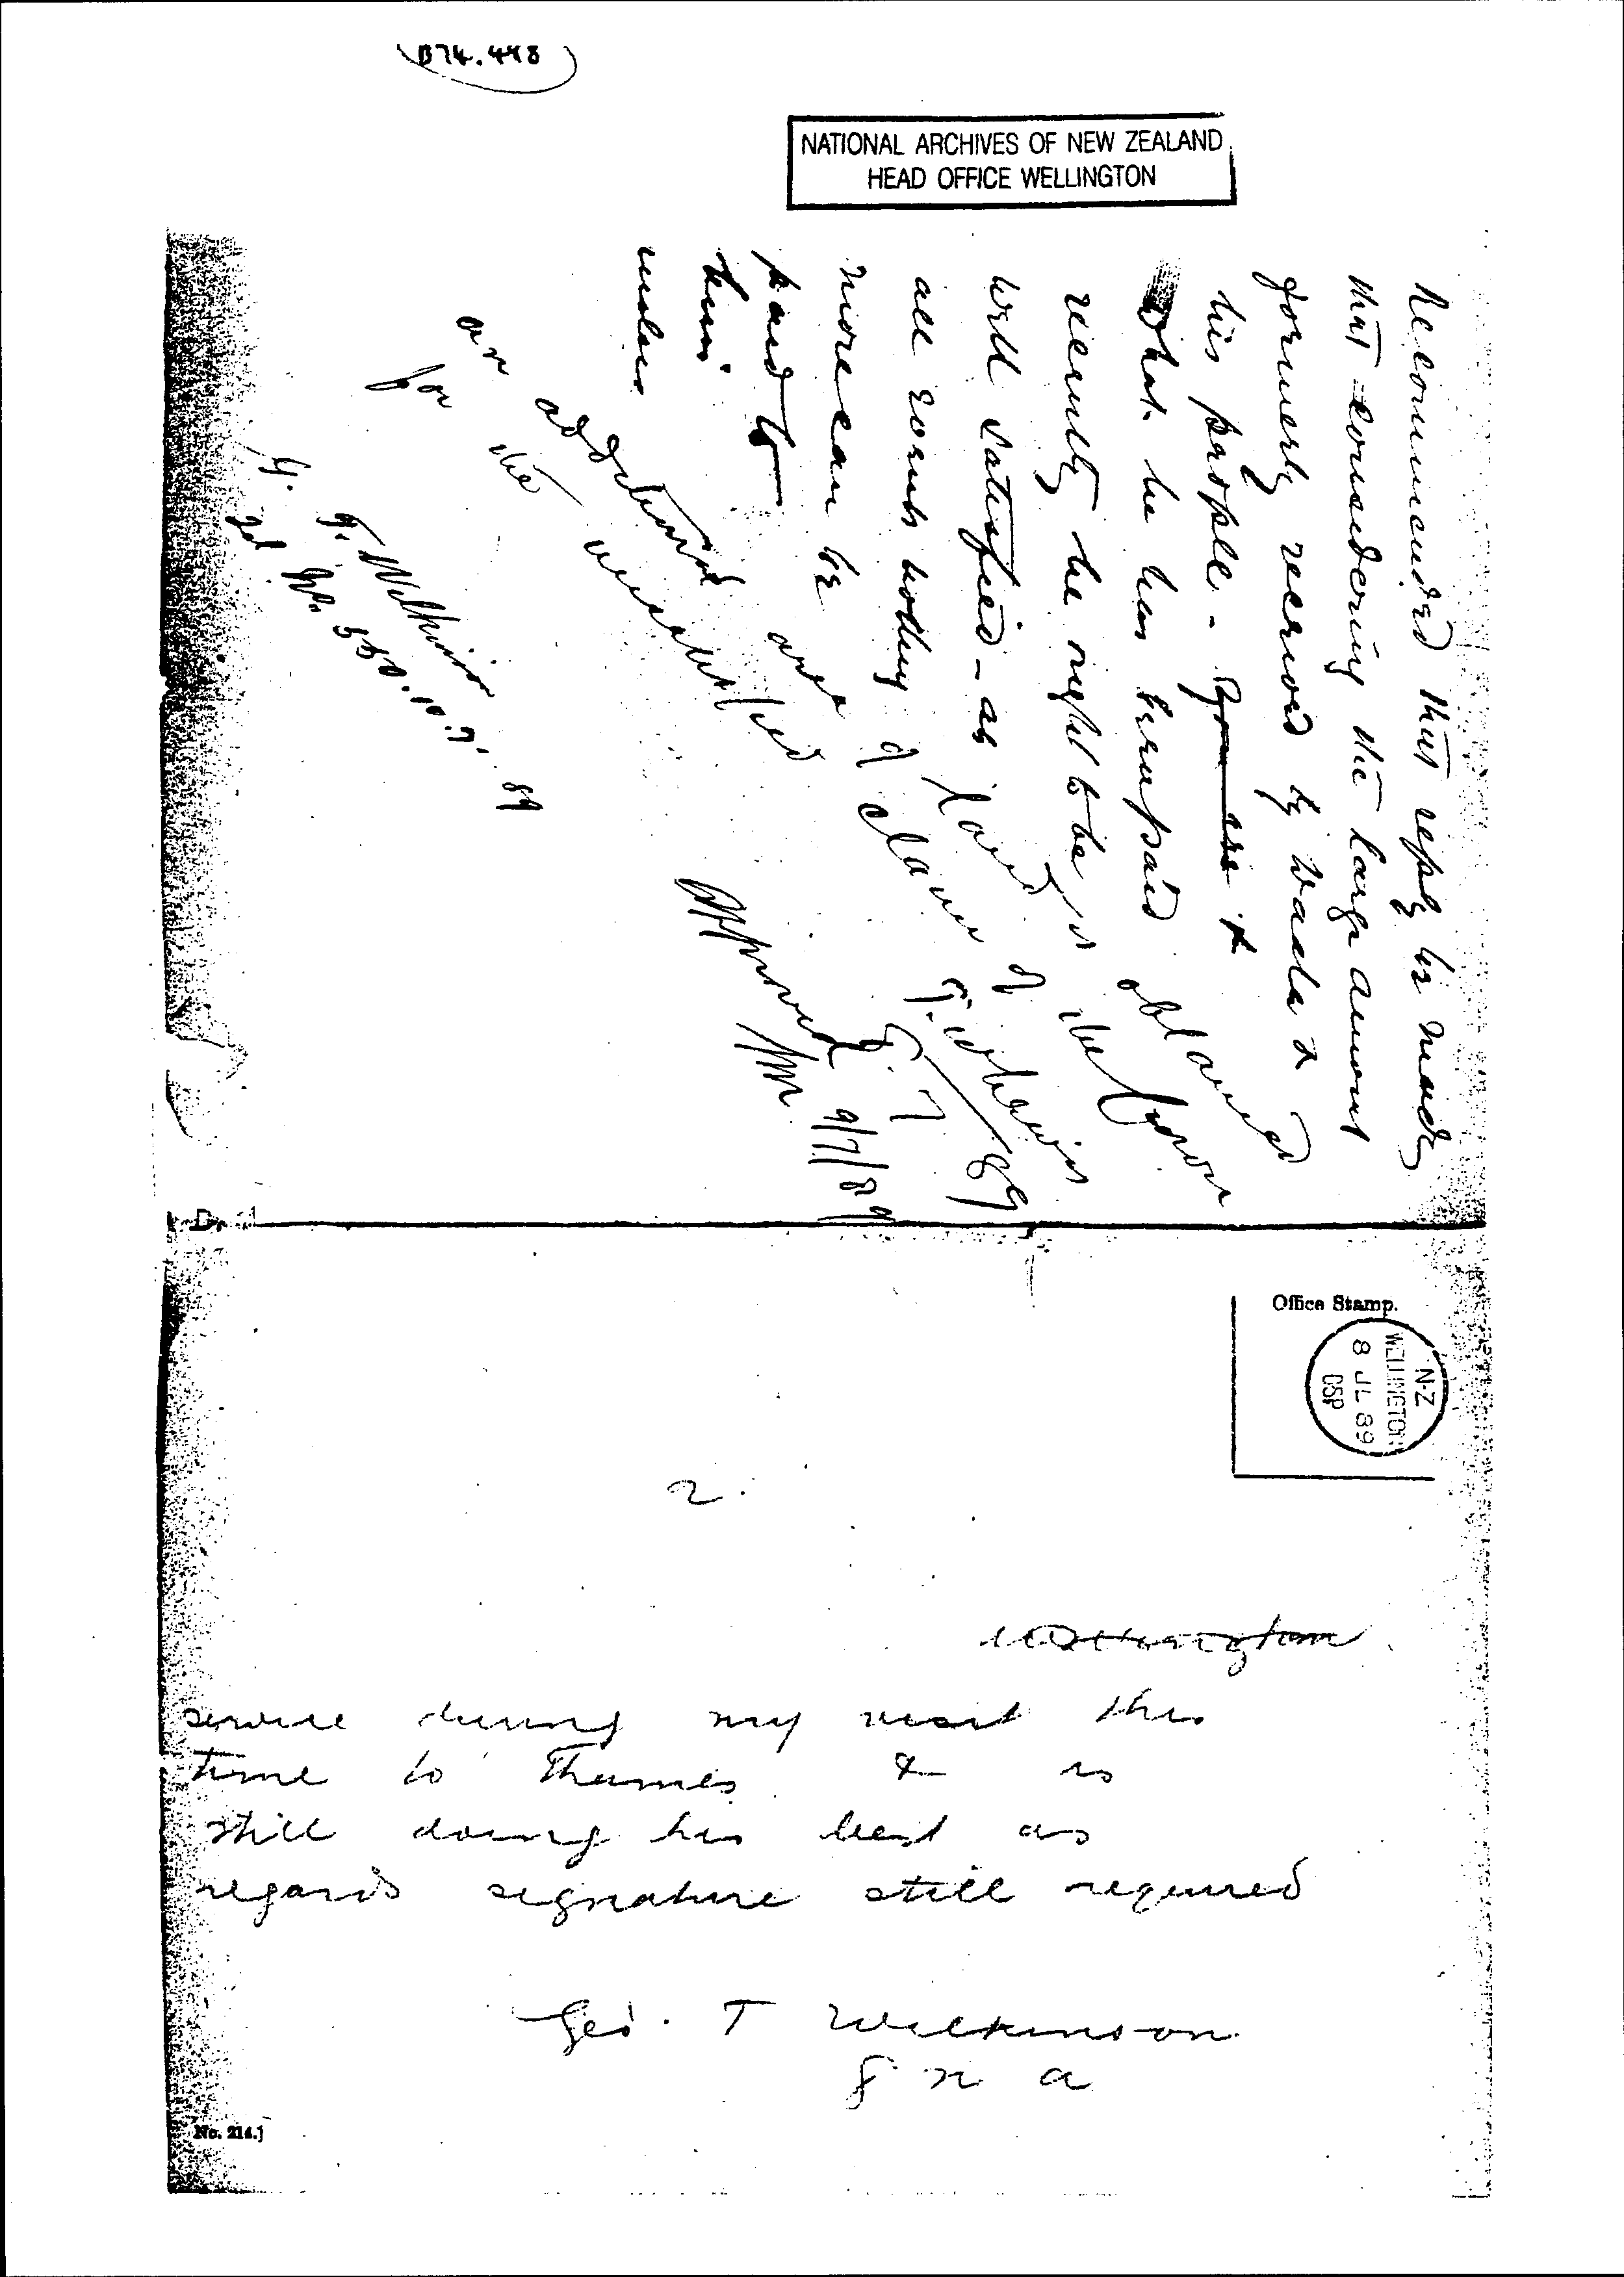 B74.448
NATIONAL ARCHIVES OF NEW ZEALAND
HEAD OFFICE WELLINGTON
Recommended that reply be made
that considering the large amount
formerly received by &
his people - You are &
What he has been paid
recently he ought to be
well satisfied - as
all events nothing
more can be
paid to
him
unless
an additional area
for the
is obtained
land of the Crown
9/7/89
Approved
9/7/89
G. T. Wilkinson
10.7.89
Office Stamp.
N-Z
WELLINGTON
8 JL 89
2.
Wellington
service during my visit this
time to Thames & is
still doing his best as
regards signature still required
Geo. T Wilkinson
No. 214.]